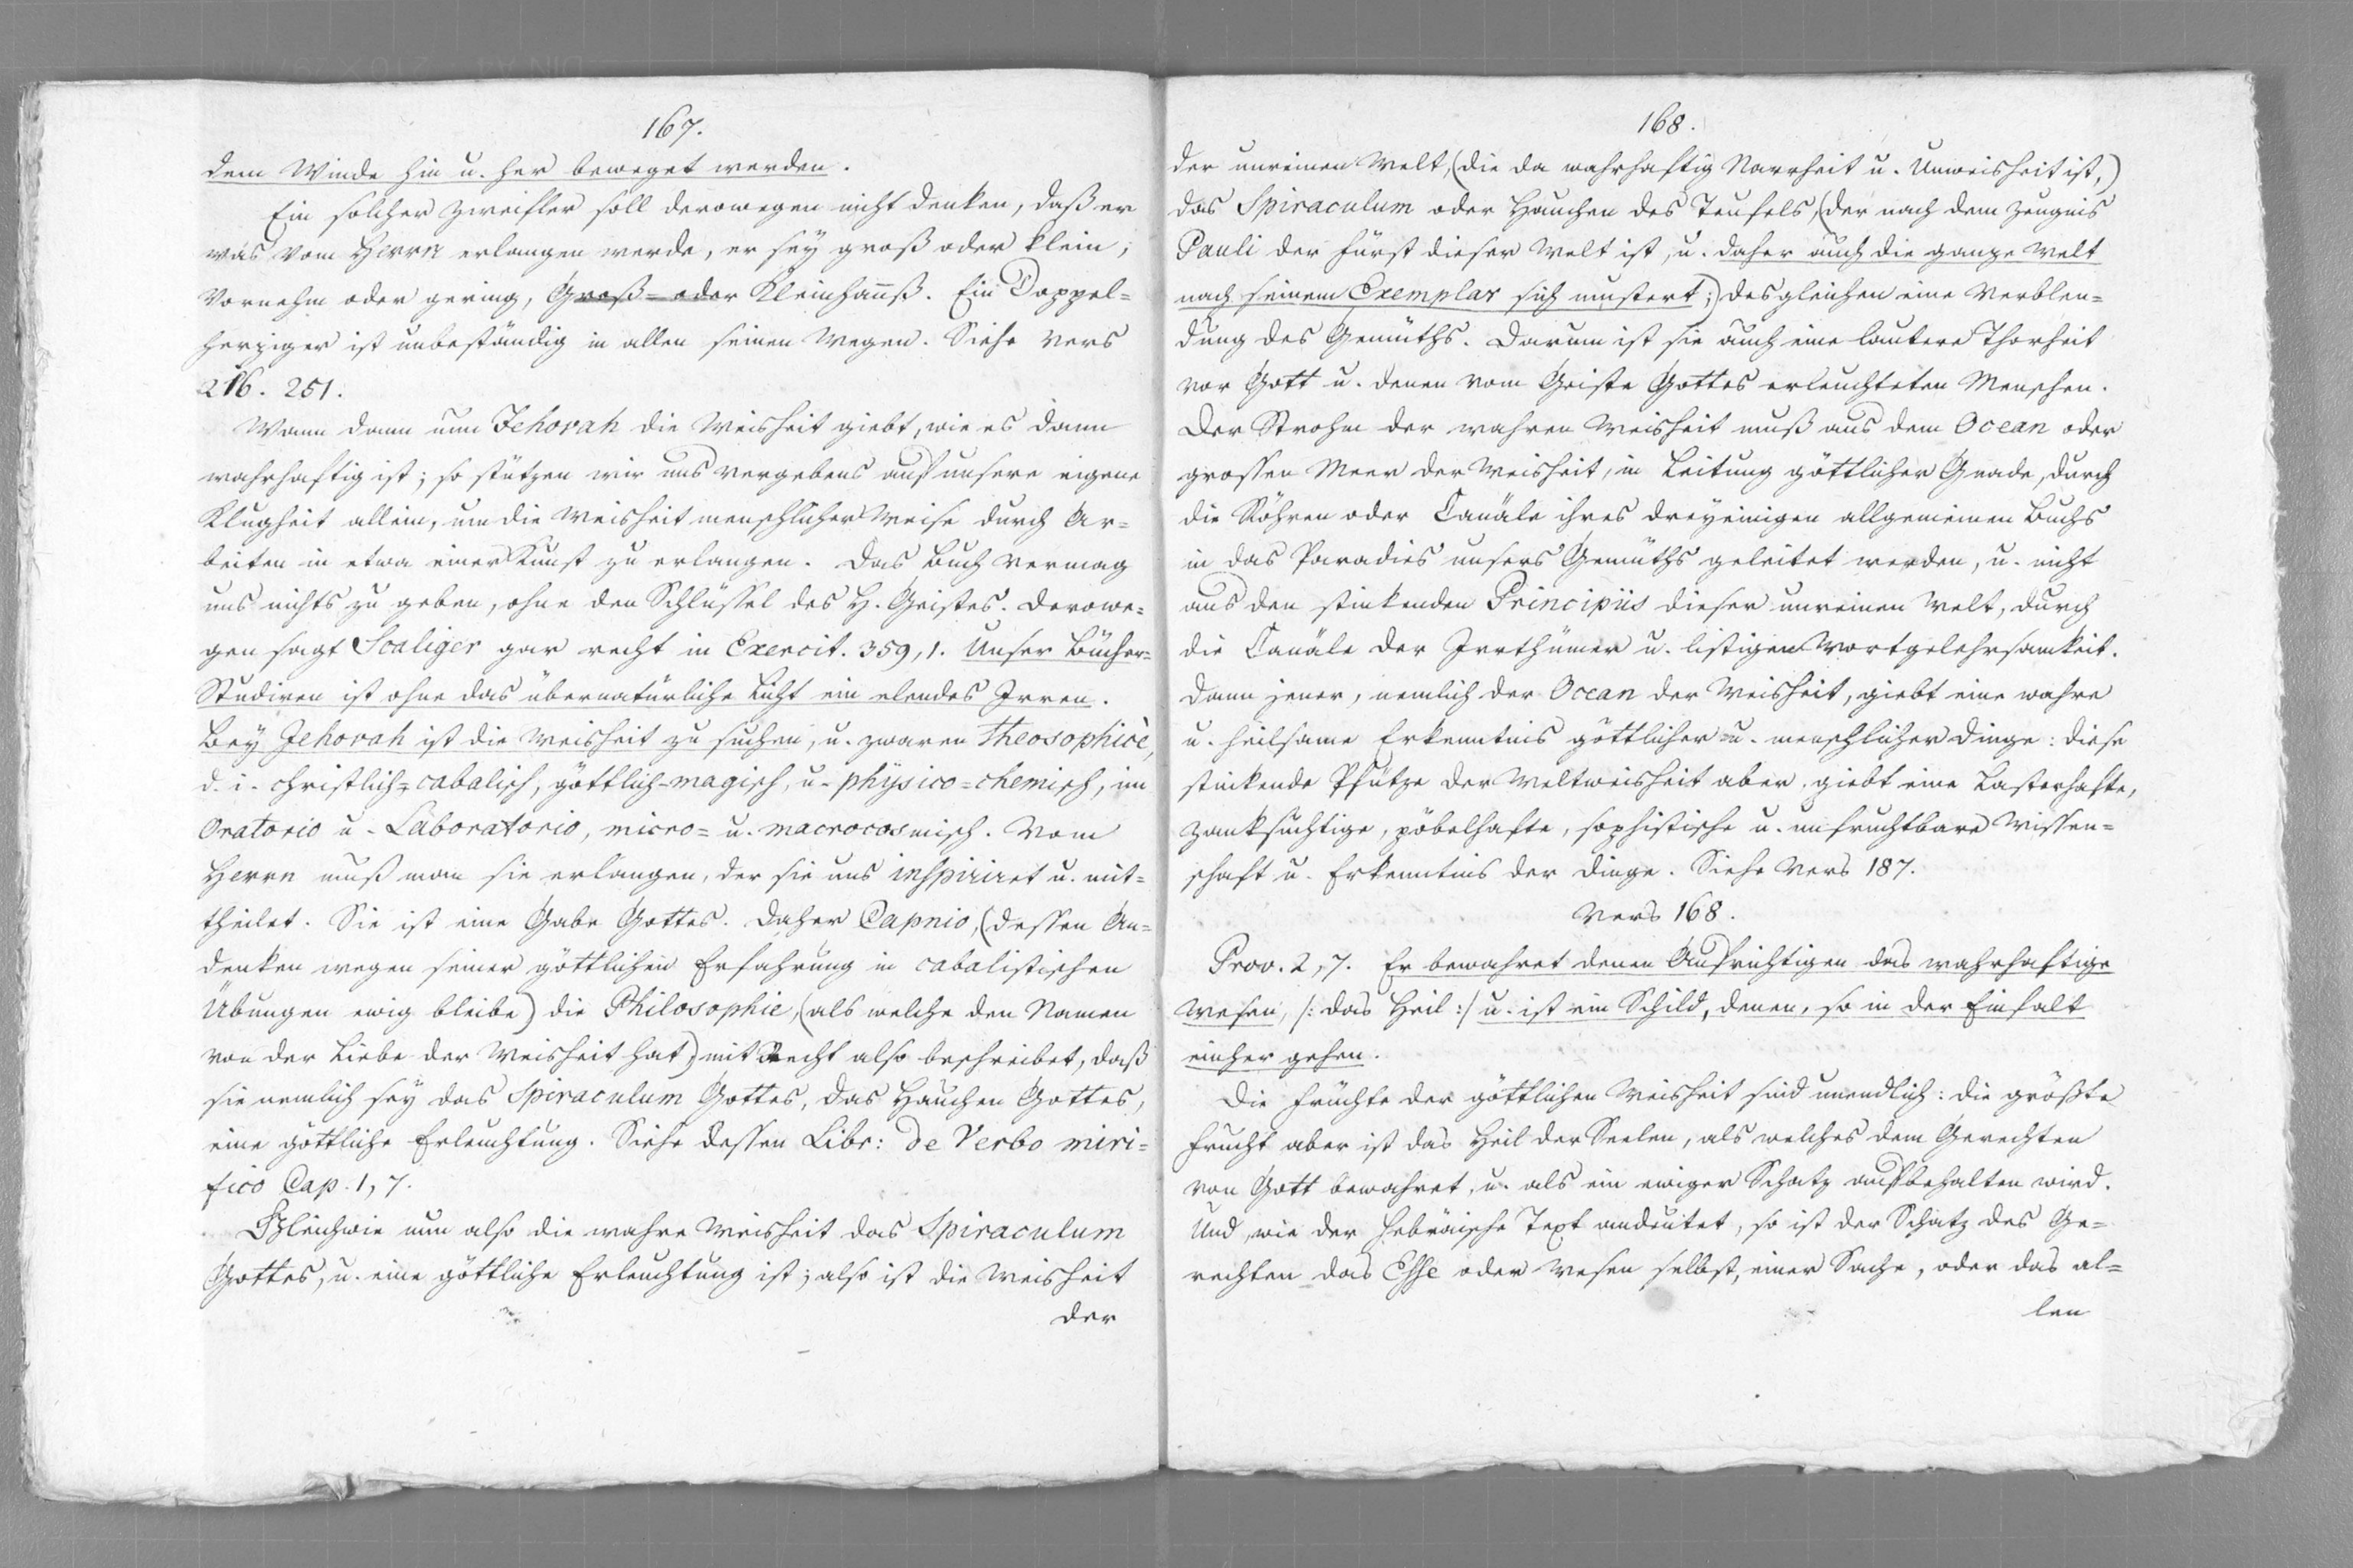 167.
dem Winde hin u. her beweget werden.
Ein solcher Zweifler soll derowegen nicht denken, daß er
was vom Herrn erlangen werde, er sey groß oder klein,
Vornehm oder gering, Groß- oder Kleinhanß. Ein Doppel=
herziger ist unbeständig in allen seinen Wegen. Siehe Vers
216. 251.
Wann dann nun Jehovah die Weisheit giebt, wie es dann
wahrhaftig ist; so stützen wir uns vergebens auf unsere eigene
Klugheit allein, um die Weisheit menschlicher Weise durch Ar=
beiten in etwa einer Kunst zu erlangen. Das Buch vermag
uns nichts zu geben, ohne den Schlüssel des H. Geistes. Derowe=
gen sagt Scaliger gar recht in Exercit. 359, 1. Unser Bücher=
Studiren ist ohne das übernatürliche Licht ein elendes Irren.
Bey Jehovah ist die Weisheit zu suchen, u. zwaren Theosophicè,
d. i. christlich=cabalisch, göttlich-magisch, u. physico=chemisch, im
Oratorio u. Laboratorio, micro= u. macrocosmisch. Vom
Herrn muß man sie erlangen, der sie uns inspiriret u. mit=
theilet. Sie ist eine Gabe Gottes. Daher Capnio, (dessen An=
denken wegen seiner göttlichen Erfahrung in cabalistischen
Übungen ewig bleibe) die Philosophie, (als welche den Namen
von der Liebe der Weisheit hat) mit Recht also beschreibet, daß
sie nemlich sey das Spiraculum Gottes, das Hauchen Gottes,
eine göttliche Erleuchtung. Siehe dessen Libr: de Verbo miri=
fico Cap. 1, 7.
Gleichwie nun also die wahre Weisheit das Spiraculum
Gottes, u. eine göttliche Erleuchtung ist; also ist die Weisheit
der
168.
der unreinen Welt, (die da wahrhaftig Narrheit u. Unweisheit ist,)
das Spiraculum oder Hauchen des Teufels, (der nach dem Zeugnis
Pauli der Fürst dieser Welt ist, u. daher auch die ganze Welt
nach seinem Exemplar sich mustert;) desgleichen eine Verblen=
dung des Gemüths. Darum ist sie auch eine lautere Thorheit
vor Gott u. denen vom Geiste Gottes erleuchteten Menschen.
Der Strohm der wahren Weisheit muß aus dem Ocean oder
grossen Meer der Weisheit, in Leitung göttlicher Gnade, durch
die Röhren oder Canäle ihres dreyeinigen allgemeinen Buchs
in das Paradies unsers Gemüths geleitet werden, u. nicht
aus den stinkenden Principiis dieser unreinen Welt, durch
die Canäle der Irrthümer u. listigen Wortgelehrsamkeit.
Dann jener, nemlich der Ocean der Weisheit, giebt eine wahre
u. heilsame Erkenntnis göttlicher u. menschlicher Dinge: diese
stinkende Pfütze der Weltweisheit aber, giebt eine Lasterhafte,
zanksüchtige, pöbelhafte, sophistische u. unfruchtbare Wissen=
schaft u. Erkenntnis der Dinge. Siehe Vers 187.
Vers 168.
Prov. 2, 7. Er bewahret denen Aufrichtigen das wahrhaftige
Wesen, /: das Heil :/ u. ist ein Schild, denen, so in der Einfalt
einher gehen.
Die Früchte der göttlichen Weisheit sind unendlich: die größte
Frucht aber ist das Heil der Seelen, als welches dem Gerechten
von Gott bewahret, u. als ein ewiger Schatz aufbehalten wird.
Und, wie der hebräische Text andeutet, so ist der Schatz des Ge=
rechten das Esse oder Wesen selbst, einer Sache, oder das al=
len